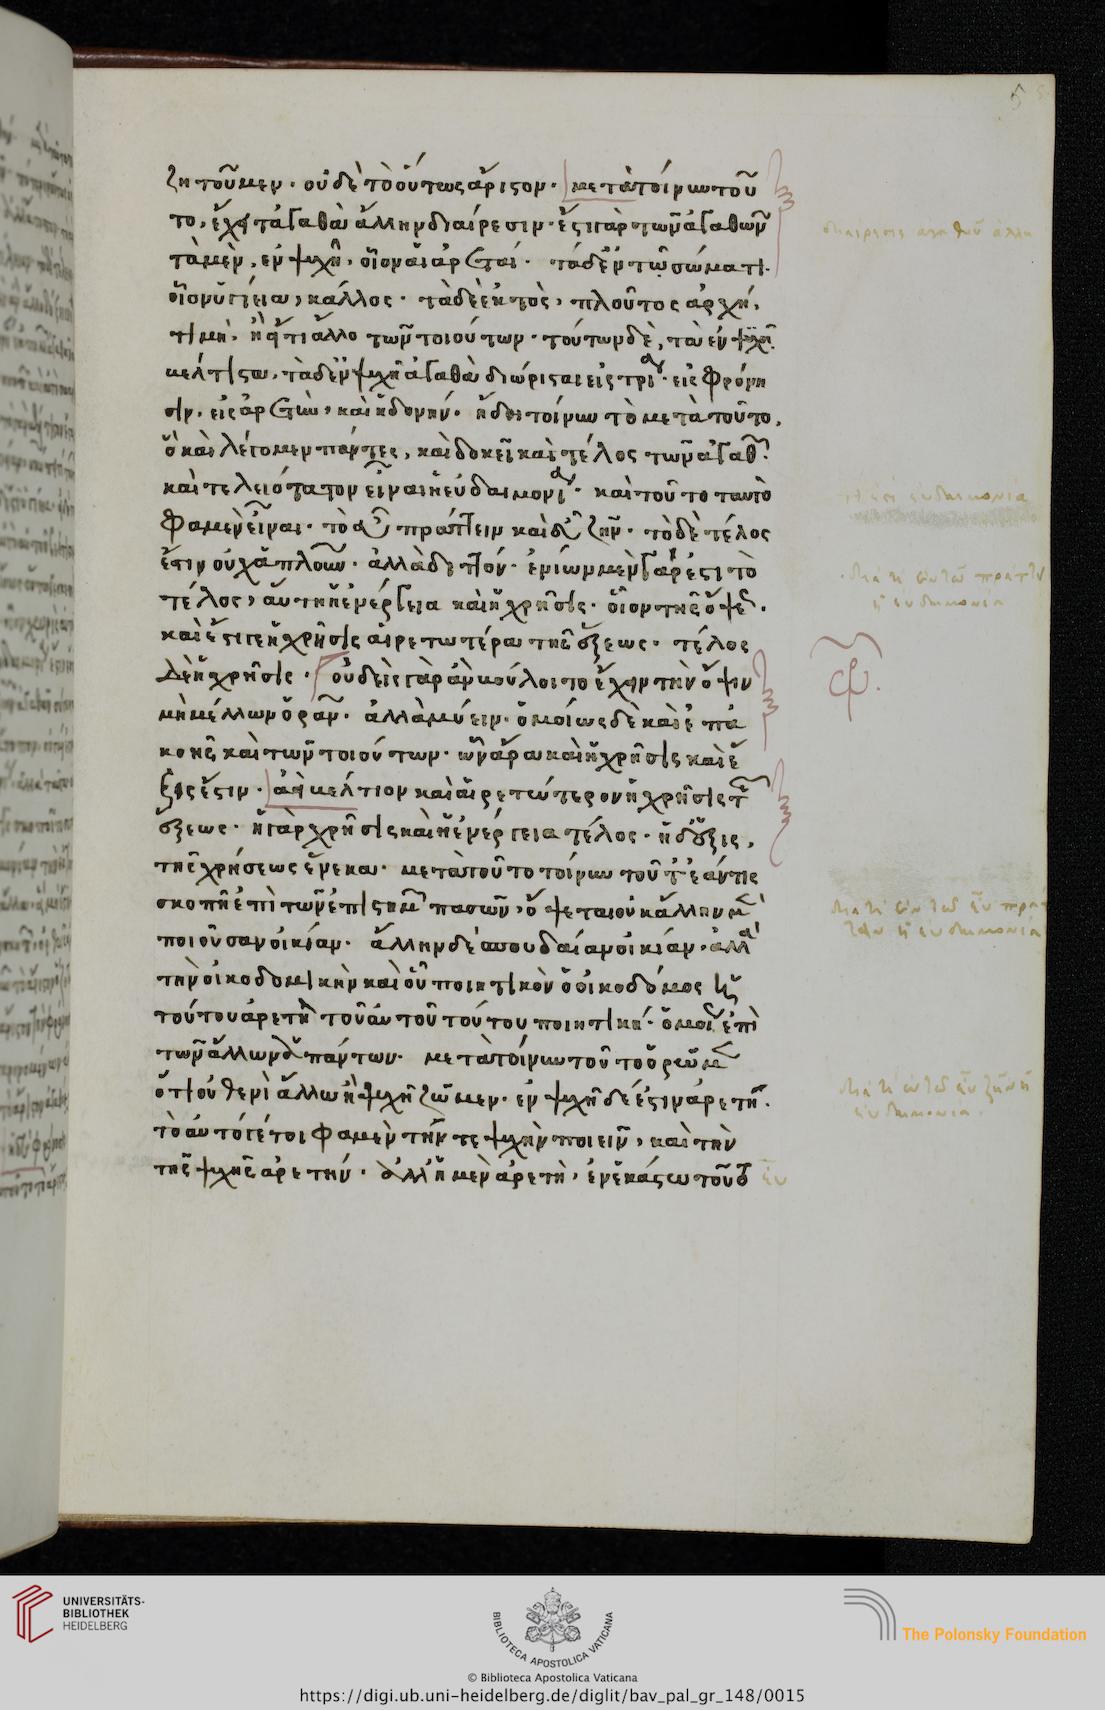 5
ζητοῦμεν · οὐδὲ τὸ οὕτως ἄριστον · μετὰ τοίνυν τοῦ
το, ἔχει τἀγαθὰ ἄλλην διαίρεσιν · ἔστι γὰρ τῶν ἀγαθῶν
τὰ μὲν, ἐν ψυχῆ, οἷον αἱ ἀρεταί · τὰ δ' ἐν τῷ σώματι ·
οἷον ὑγίεια, κάλλος · τὰ δὲ ἐκτὸς, πλοῦτος ἀρχή,
τιμὴ, ἢ εἴ τι ἄλλο τῶν τοιούτων · τούτων δὲ, τὰ ἐν ψυχῆ
βέλτιστα, τὰ δ' ἐν ψυχῆ ἀγαθὰ διώρισται εἰς τρία · εἰς φρόνη
σιν, εἰς ἀρετὴν, καὶ ἡδονήν · ἤδη τοίνυν τὸ μετὰ τοῦτο,
ὃ καὶ λέγομεν πάντες, καὶ δοκεῖ καὶ τέλος τῶν ἀγαθῶν
καὶ τελειότατον εἶναι ἡ εὐδαιμονία · καὶ τοῦτο ταυτὸ
φαμὲν εἶναι · τὸ εὖ πράττειν καὶ εὖ ζῆν · τὸ δὲ τέλος
ἐστὶν οὐχ ἁπλοῦν · ἀλλὰ διττόν · ἐνίων μὲν γάρ ἐστι τὸ
τέλος, αὐτὴ ἡ ἐνέργεια καὶ ἡ χρῆσις · οἷον τῆς ὄψεως ·
καὶ ἔστι γε ἡ χρῆσις αἱρετωτέρα τῆς ἕξεως · τέλος
δὲ ἡ χρῆσις · οὐδεὶς γὰρ ἂν βούλοιτο ἔχειν τὴν ὄψιν
μὴ μέλλων ὁρᾶν · ἀλλὰ μύειν · ὁμοίως δὲ καὶ ἐπ' ἀ
κοῆς καὶ τῶν τοιούτων · ὧν ἄρα καὶ ἡ χρῆσις καὶ ἕ
ξις ἐστιν · ἀεὶ βέλτιον καὶ αἱρετώτερον ἡ χρῆσις τῆς
ἕξεως · ἡ γὰρ χρῆσις καὶ ἡ ἐνέργεια τέλος · ἡ δ' ἕξις,
τῆς χρήσεως ἕνεκα · μετὰ τοῦτο τοίνυν τοῦτ' ἐάν τις
σκοπῆ ἐπὶ τῶν ἐπιστημῶν πασῶν, ὄψεται οὐκ ἄλλην μὲν
ποιοῦσαν οἰκίαν · ἄλλην δὲ σπουδαίαν οἰκίαν · ἀλλὰ
τὴν οἰκοδομικὴν καὶ οὗ ποιητικὸν ὁ οἰκοδόμος καὶ
τούτου ἀρετὴ τοῦ αὐτοῦ τούτου ποιητική · ὁμοίως ἐπὶ
τῶν ἄλλων δ' πάντων · μετὰ τοίνυν τοῦτο ὁρῶμεν
ὅτι οὐθενὶ ἄλλω ἢ ψυχῆ ζῶμεν · ἐν ψυχῆ δέ ἐστιν ἀρετή ·
τὸ αὐτό γέ τοι φαμὲν τήν τε ψυχὴν ποιεῖν, καὶ τὴν
τῆς ψυχῆς ἀρετήν · ἀλλ' ἡ μὲν ἀρετὴ, ἐν ἑκάστω τοῦθ'
εὖ
διαίρεσις ἀγαθοῦ ἄλλη
UNIVERSITÄTS-
BIBLIOTHEK
HEIDELBERG
BIBLIOTECA APOSTOLICA VATICANA
The Polonsky Foundation
© Biblioteca Apostolica Vaticana
https://digi.ub.uni-heidelberg.de/diglit/bav_pal_gr_148/0015